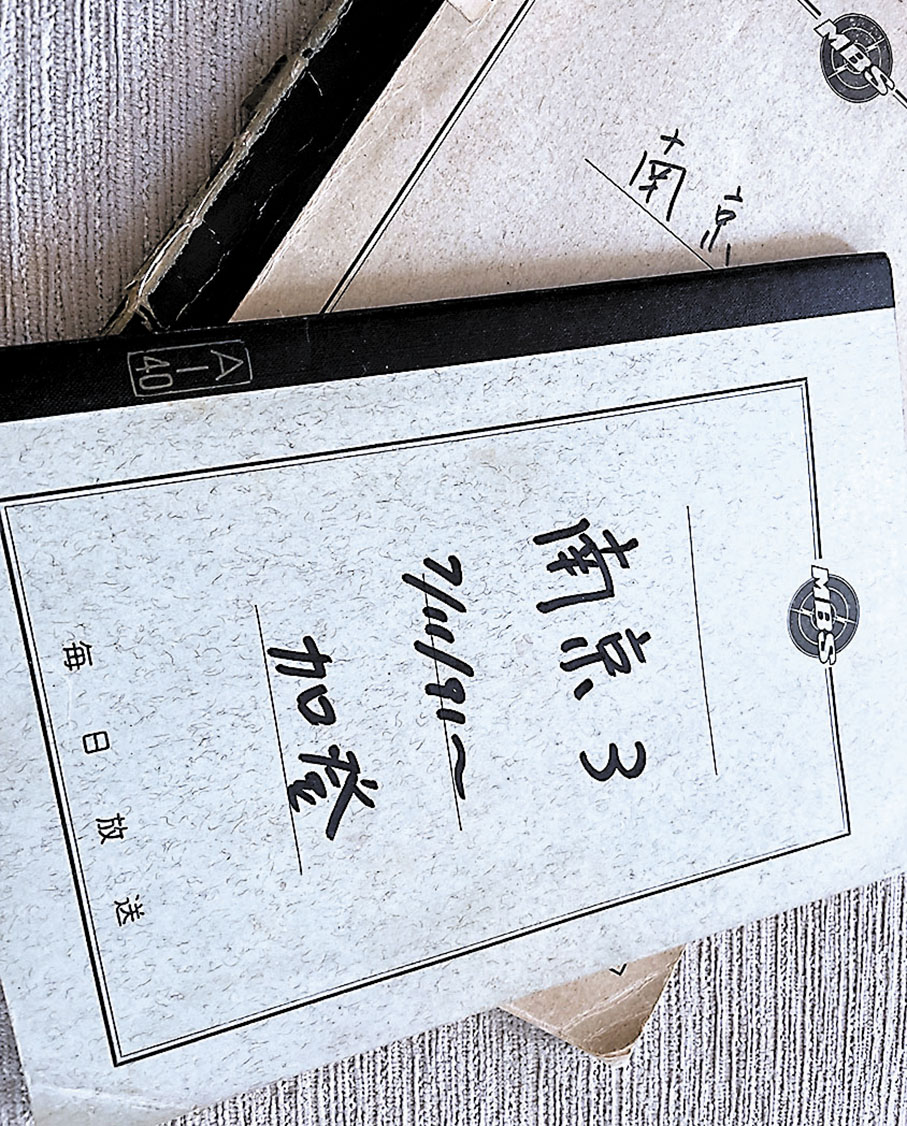 MBS
南京
MBS
南京 3
7/11/91~
加登
毎日放送
A-40